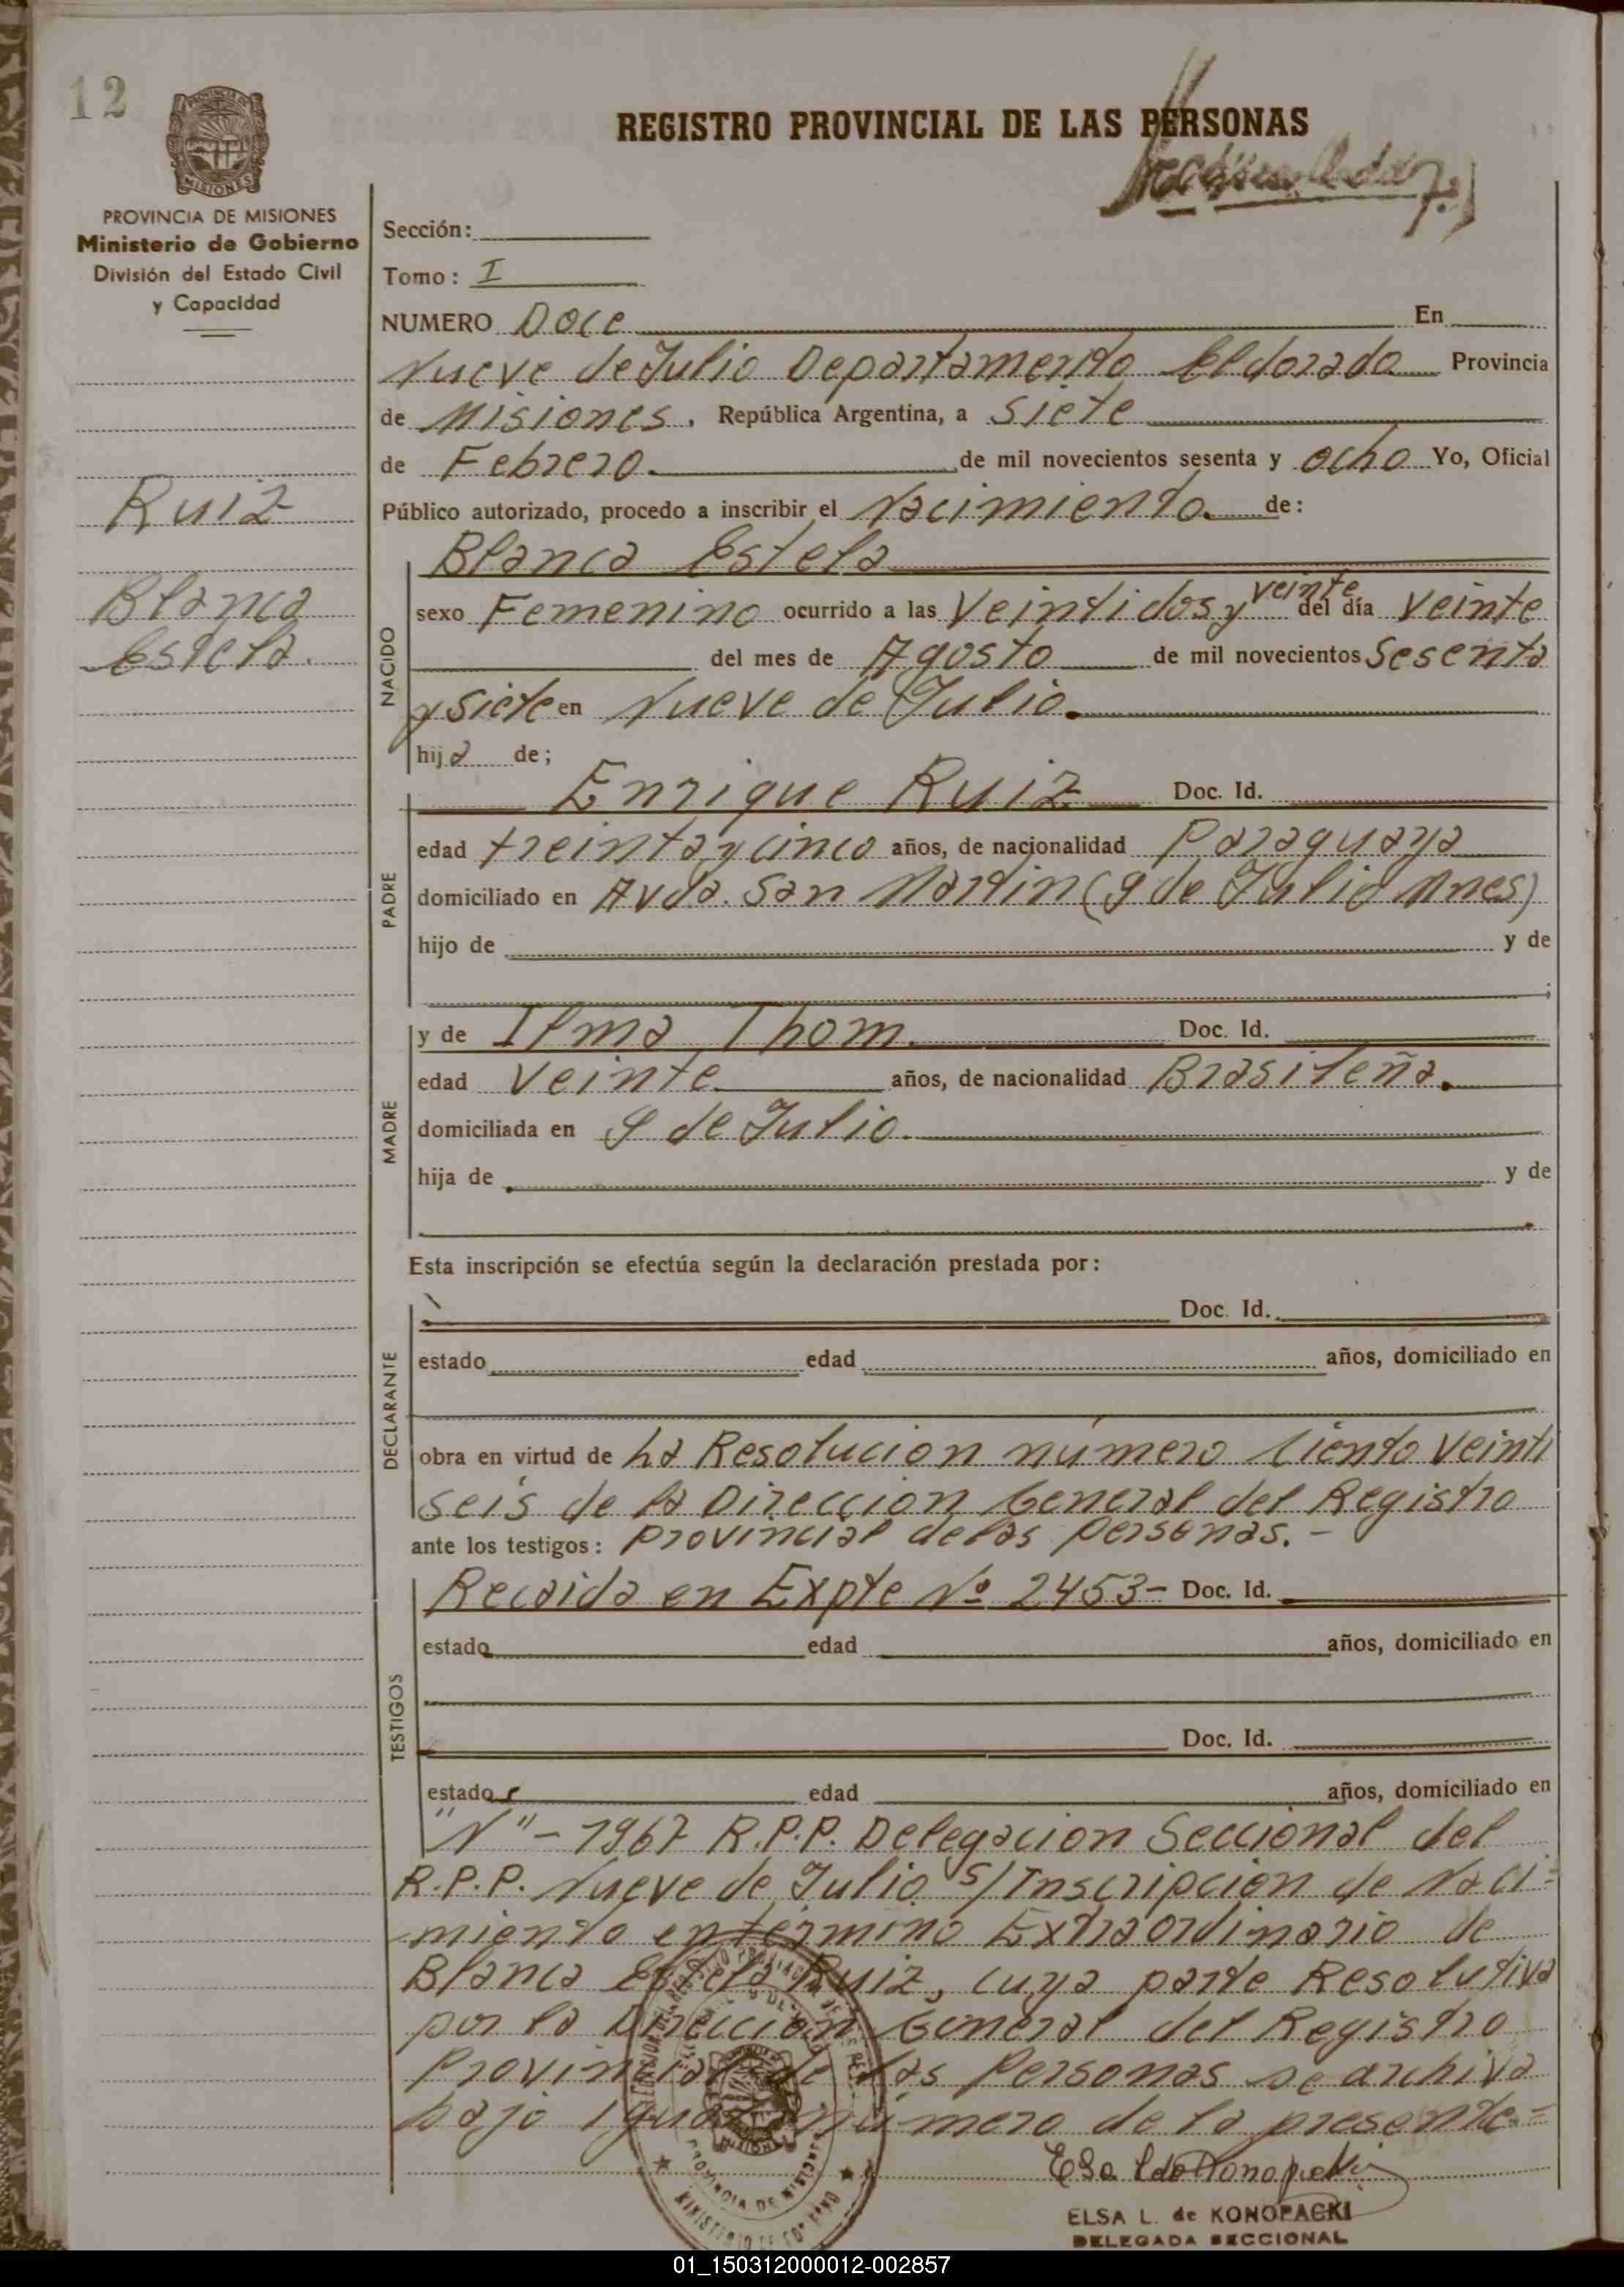 12
REGISTRO PROVINCIAL DE LAS PERSONAS
PROVINCIA DE MISIONES
Ministerio de Gobierno
División del Estado Civil
y Capacidad
Ruiz
Blanca
Estela.
Sección:
Tomo: I
NUMERO Doce En
Nueve de Julio Departamento Eldorado Provincia
de Misiones. República Argentina, a Siete
de Febrero. de mil novecientos sesenta y ocho Yo, Oficial
Público autorizado, procedo a inscribir el Nacimiento. de:
NACIDO
Blanca Estela
sexo Femenino ocurrido a las Veintidos y veinte del día Veinte
del mes de Agosto de mil novecientos Sesenta
y siete en Nueve de Julio.
hija de;
PADRE
Enrique Ruiz Doc. Id.
edad treinta y cinco años, de nacionalidad Paraguaya
domiciliado en Avda. San Martin (9 de Julio Mnes)
hijo de y de
;
MADRE
y de Ilma Thom. Doc. Id.
edad Veinte años, de nacionalidad Brasileña.
domiciliada en 9 de Julio.
hija de y de
Esta inscripción se efectúa según la declaración prestada por:
DECLARANTE
Doc. Id.
estado edad años, domiciliado en
obra en virtud de La Resolucion número Ciento Veinti
seis de la Direccion General del Registro
ante los testigos: Provincial de las personas. -
TESTIGOS
Recaida en Expte Nº 2453- Doc. Id.
estado edad años, domiciliado en
Doc. Id.
estado edad años, domiciliado en
"N" - 1967 R.P.P. Delegacion Seccional del
R.P.P. Nueve de Julio s/Inscripcion de Naci=
miento en término Extraordinario de
Blanca Estela Ruiz, cuya parte Resolutiva
por la Direccion General del Registro
Provincial de las Personas se archiva
bajo igual número de la presente.=
PROVINCIA DE MISIONES
MINISTERIO DE GOBIERNO
ELSA L. de KONOPACKI
DELEGADA SECCIONAL
01_150312000012-002857